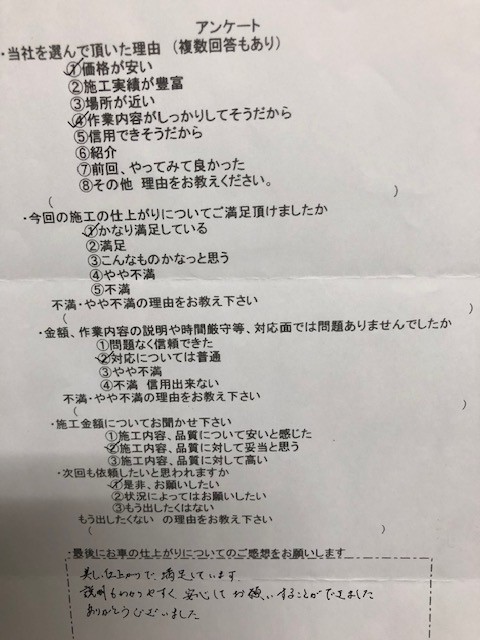 アンケート
・当社を選んで頂いた理由 （複数回答もあり）
①価格が安い
②施工実績が豊富
③場所が近い
④作業内容がしっかりしてそうだから
⑤信用できそうだから
⑥紹介
⑦前回、やってみて良かった
⑧その他 理由をお教えください。
( )
・今回の施工の仕上がりについてご満足頂けましたか
①かなり満足している
②満足
③こんなものかなっと思う
④やや不満
⑤不満
不満・やや不満の理由をお教え下さい
( )
・金額、作業内容の説明や時間厳守等、対応面では問題ありませんでしたか
①問題なく信頼できた
②対応については普通
③やや不満
④不満 信用出来ない
不満・やや不満の理由をお教え下さい
( )
・施工金額についてお聞かせ下さい
①施工内容、品質について安いと感じた
②施工内容、品質に対して妥当と思う
③施工内容、品質に対して高い
・次回も依頼したいと思われますか
①是非、お願いしたい
②状況によってはお願いしたい
③もう出したくはない
もう出したくない の理由をお教え下さい
( )
・最後にお車の仕上がりについてのご感想をお願いします
美しい仕上がりで、満足しています。
説明もわかりやすく、安心してお願いすることができました
ありがとうございました